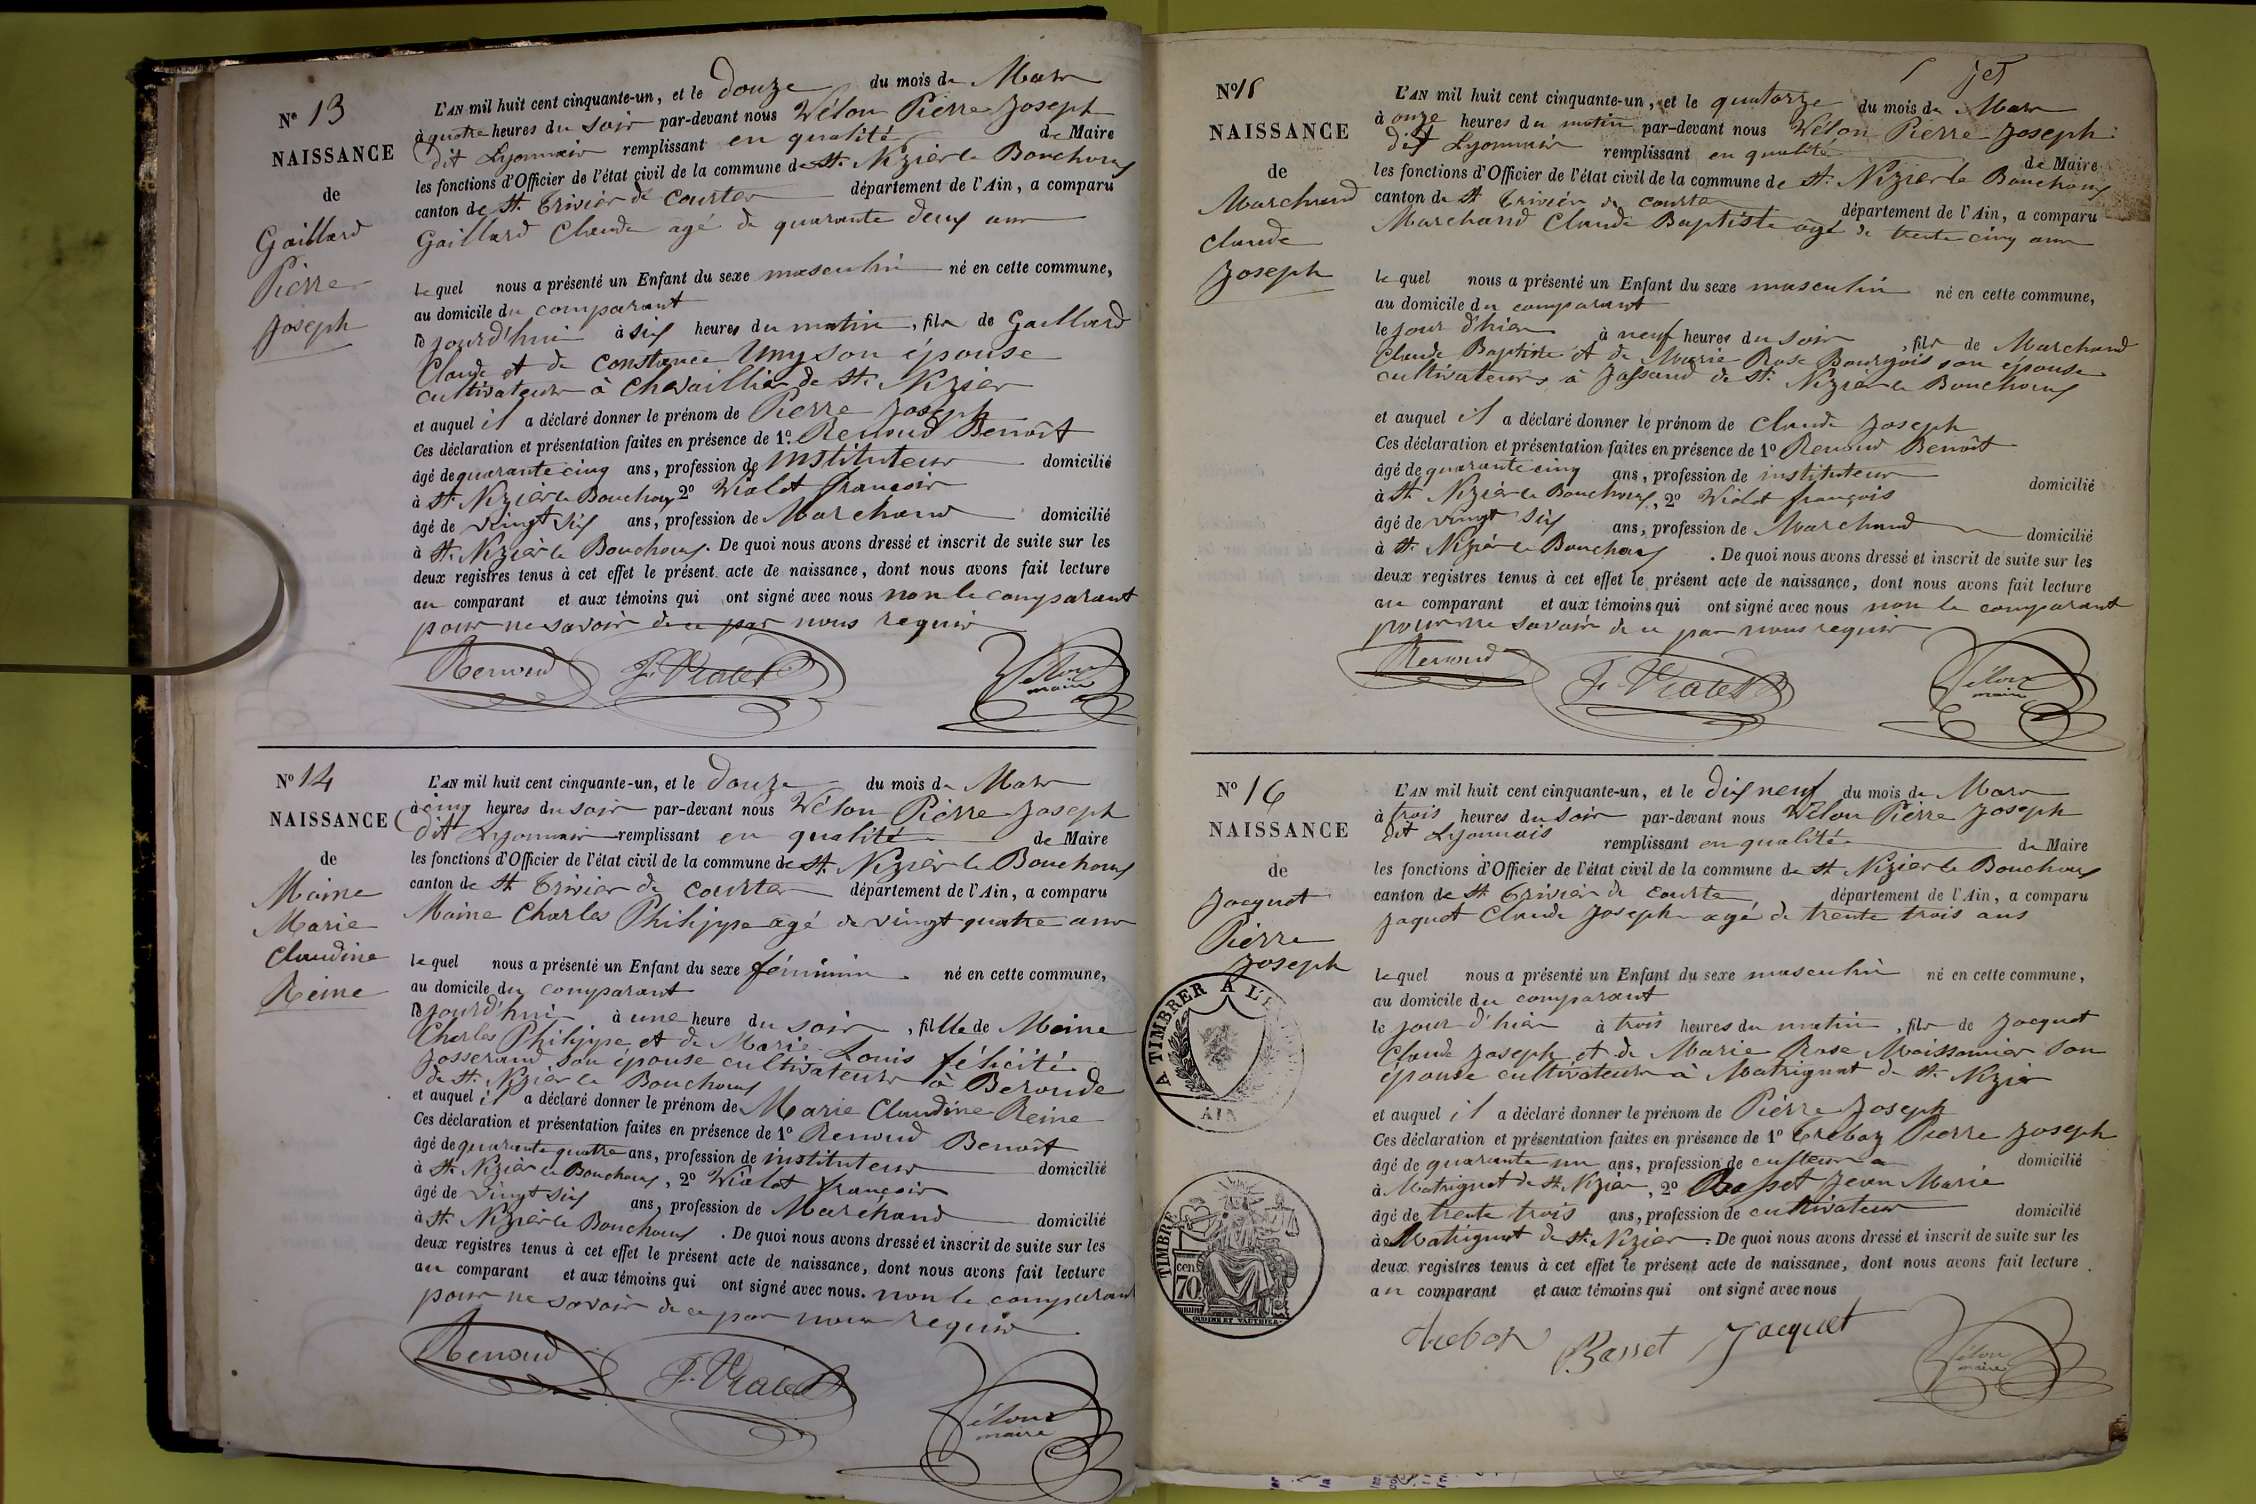 Nº 13
NAISSANCE
de
Gaillard
Pierre
Joseph
L'AN mil huit cent cinquante-un, et le douze du mois de Mars
à quatre heures du soir par-devant nous Vélon Pierre Joseph
dit Lyonnais remplissant en qualité de Maire
les fonctions d'Officier de l'état civil de la commune de St. Nizier le Bouchoux
canton de St. Trivier de Courtes département de l'Ain, a comparu
Gaillard Claude agé de quarante deux ans
le quel nous a présenté un Enfant du sexe masculin né en cette commune,
au domicile du comparant
jourd'hui à six heures du matin, fils de Gaillard
Claude et de Constance son épouse
cultivateurs à Chevaillier de St. Nizier
et auquel il a déclaré donner le prénom de Pierre Joseph
Ces déclaration et présentation faites en présence de 1º. Renoud Benoît
âgé de quarante cinq ans, profession de instituteur domicilié
à St. Nizier le Bouchoux 2º Violet françois
âgé de vingt six ans, profession de Marchand domicilié
à St. Nizier le Bouchoux. De quoi nous avons dressé et inscrit de suite sur les
deux registres tenus à cet effet le présent acte de naissance, dont nous avons fait lecture
au comparant et aux témoins qui ont signé avec nous non le comparant
pour ne savoir de ce par nous requis
Renoud F. Violet Vélon
maire
Nº 14
NAISSANCE
de
Moine
Marie
Claudine
Reine
L'AN mil huit cent cinquante-un, et le douze du mois de Mars
à cinq heures du soir par-devant nous Vélon Pierre Joseph
dit Lyonnais remplissant en qualité de Maire
les fonctions d'Officier de l'état civil de la commune de St. Nizier le Bouchoux
canton de St. Trivier de Courtes département de l'Ain, a comparu
Moine Charles Philippe agé de vingt quatre ans
le quel nous a présenté un Enfant du sexe féminin né en cette commune,
au domicile du comparant
jourd'hui à une heure du soir, fille de Moine
Charles Philippe et de Marie Louis félicité
Josserand son épouse cultivateurs à Beronde
de St. Nizier le Bouchoux
et auquel il a déclaré donner le prénom de Marie Claudine Reine
Ces déclaration et présentation faites en présence de 1º Renoud Benoît
âgé de quarante quatre ans, profession de instituteur domicilié
à St. Nizier le Bouchoux, 2º Violet françois
âgé de vingt six ans, profession de Marchand domicilié
à St. Nizier le Bouchoux. De quoi nous avons dressé et inscrit de suite sur les
deux registres tenus à cet effet le présent acte de naissance, dont nous avons fait lecture
au comparant et aux témoins qui ont signé avec nous. non le comparant
pour ne savoir de ce par nous requis
Renoud F. Violet Vélon
maire
Nº 15
NAISSANCE
de
Marchand
Claude
Joseph
L'AN mil huit cent cinquante-un, et le quatorze du mois de Mars
à onze heures du matin par-devant nous Vélon Pierre Joseph
dit Lyonnais remplissant en qualité de Maire
les fonctions d'Officier de l'état civil de la commune de St. Nizier le Bouchoux
canton de St Trivier de Courtes département de l'Ain, a comparu
Marchand Claude Baptiste agé de trente cinq ans
le quel nous a présenté un Enfant du sexe masculin né en cette commune,
au domicile du comparant
le jour d'hier à neuf heures du soir, fils de Marchand
Claude Baptiste et de Marie Rose Bourgois son épouse
cultivateurs à Jassand de St. Nizier le Bouchoux
et auquel il a déclaré donner le prénom de Claude Joseph
Ces déclaration et présentation faites en présence de 1º Renoud Benoît
âgé de quarante cinq ans, profession de instituteur domicilié
à St. Nizier le Bouchoux, 2º Violet françois
âgé de vingt six ans, profession de Marchand domicilié
à St. Nizier le Bouchoux. De quoi nous avons dressé et inscrit de suite sur les
deux registres tenus à cet effet le présent acte de naissance, dont nous avons fait lecture
au comparant et aux témoins qui ont signé avec nous non le comparant
pour ne savoir de ce par nous requis
Renoud F. Violet Vélon
maire
Nº 16
NAISSANCE
de
Jacquet
Pierre
Joseph
L'AN mil huit cent cinquante-un, et le dix neuf du mois de Mars
à trois heures du soir par-devant nous Vélon Pierre Joseph
dit Lyonnais remplissant en qualité de Maire
les fonctions d'Officier de l'état civil de la commune de St Nizier le Bouchoux
canton de St. Trivier de Courtes département de l'Ain, a comparu
Jaquet Claude Joseph agé de trente trois ans
le quel nous a présenté un Enfant du sexe masculin né en cette commune,
au domicile du comparant
le jour d'hier à trois heures du matin, fils de Jacquet
Claude Joseph et de Marie Rose Moissonnier son
épouse cultivateurs à Matrignat de St. Nizier
et auquel il a déclaré donner le prénom de Pierre Joseph
Ces déclaration et présentation faites en présence de 1º Treboz Pierre Joseph
âgé de quarante un ans, profession de domicilié
à Matrignat de St. Nizier, 2º Basset Jean Marie
âgé de trente trois ans, profession de cultivateur domicilié
à Matrignat de St. Nizier. De quoi nous avons dressé et inscrit de suite sur les
deux registres tenus à cet effet le présent acte de naissance, dont nous avons fait lecture
au comparant et aux témoins qui ont signé avec nous
Treboz Basset Jacquet Vélon
maire
A TIMBRER A L'E
AIN
TIMBRE
70 cent